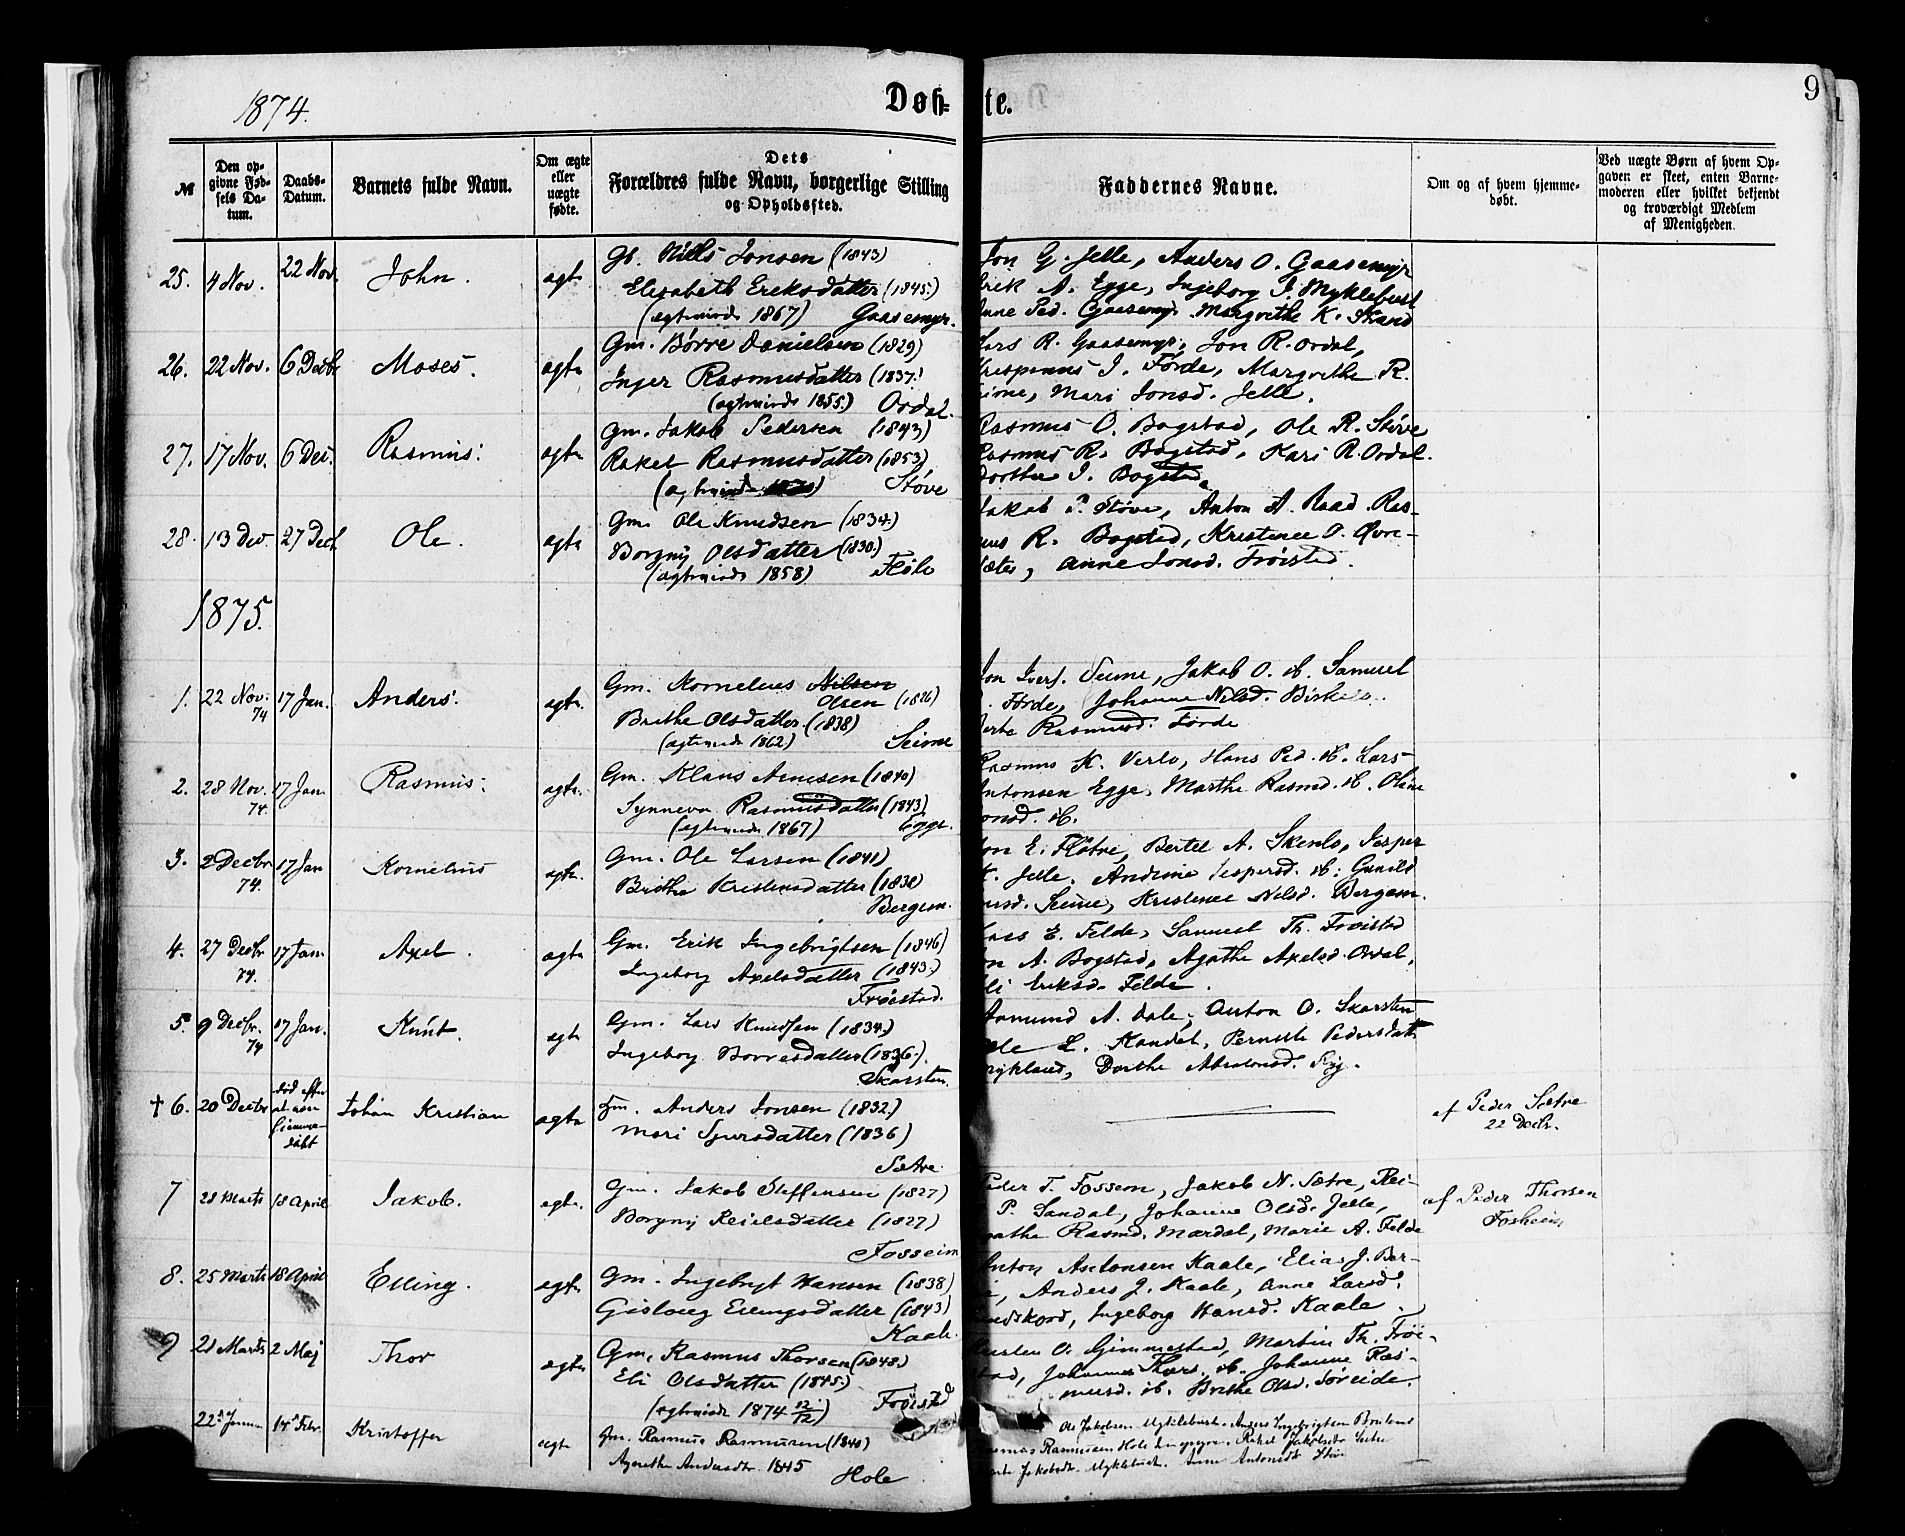 1874.
Døb-
te.
9
№
Den op-
givne Fød-
sels Da-
tum.
Daabs-
Datum.
Barnets fulde Navn.
Om ægte
eller
uægte
fødte.
Dets
Forældres fulde Navn, borgerlige Stilling
og Opholdssted.
Faddernes Navne.
Om og af hvem hjemme-
døbt.
Ved uægte Børn af hvem Op-
gaven er skeet, enten Barne-
moderen eller hvilket bekjendt
og troværdigt Medlem
af Menigheden.
25. 4 Nov. 22 Nov. John. ægte
Nills Jonsen (1843)
Elisabeth Eriksdatter (1845)
(ægteviede 1867) Gaasemyr.
Jon G. Jelle, Anders O. Gaasemyr
Erik A. Egge, Ingeborg J. Myklebust
Anne Ped. Gaasemyr. Margrethe K. Strand
26. 22 Nov. 6 Decbr Moses. ægte
Gm. Børre Danielsen (1829)
Inger Rasmusdatter (1837)
(ægteviede 1855.) Ordal.
Lars R. Gaasemyr, Jon R. Ordal,
J. Førde, Margrethe R.
Mari Jonsd. Jelle.
27. 17 Nov. 6 Dec. Rasmus. ægte
Gm. Jakob Pedersen (1843)
Rakel Rasmusdatter (1853)
(ægteviede) Støve
Rasmus O. Bogstad, Ole R. Støve
Rasmus R. Bogstad, Kari R. Ordal.
Dorthe J. Bogstad.
28. 13 Dec. 27 Dec. Ole. ægte
Gm. Ole Knudsen (1834.)
Borgny Olsdatter (1830.)
(ægteviede 1858) Hole
Jakob P. Støve, Anton A. Raad. Ras-
mus R. Bogstad, Kristence O. Øvre-
sætre, Anne Jonsd. Frøistad.
1875.
1. 22 Nov. 74 17 Jan. Anders. ægte
Gm. Kornelius Nilsen
Olsen (1826)
Brithe Olsdatter (1838)
(ægteviede 1862) Seime
Jon Ivers. Seime, Jakob O. ib. Samuel
Førde, Johanne Nilsd.
Rasmusd. Førde
2. 28 Nov. 74. 17 Jan. Rasmus. ægte.
Gm. Klaus Arnesen (1840)
Synneva Rasmusdatter (1843)
(ægteviede 1867) Egge.
Rasmus K. Verlo, Hans Ped. ib. Lars
Antonsen Egge, Marthe Rasmd. ib. Oline
Jonsd. ib.
3. 2 Decbr 74. 17 Jan Kornelius ægte.
Gm. Ole Larsen (1841)
Brithe Kristensdatter (1838)
Bergem.
Jon E. Fløtre, Bertel A. Skenlo, Jesper
K. Jelle. Andrine Jespersd. ib. Gunild
Seime, Kristence Nilsd. Bergem.
4. 27 Decbr 74. 17 Jan. Axel. ægte
Gm. Erik Ingebrigtsen (1846)
Ingeborg Axelsdatter (1843.)
Frøistad.
Lars E. Felde, Samuel Th. Frøistad
Jon A. Bogstad, Agathe Axelsd. Ordal,
Eli Eriksd. Felde.
5. 9 Decbr. 74 17 Jan. Knut. ægte
Gm. Lars Knudsen (1834.)
Ingeborg Børresdatter (1836.)
Skarsten.
Asmund A. Dale, Anton O. Skarsten
Ole L. Kandal, Pernille Pedersdatt.
Mykland, Dorthe Absalonsd. Ryg.
† 6. 20 Decbr død efter
at være
hjemme-
døbt Johan Kristian ægte
Gm. Anders Jonsen (1832.)
Mari Sjursdatter (1836)
Sætre.
af Peder Sætre
22 Decbr.
7 28 Marts 18 April Jakob. ægte.
Gm. Jakob Steffensen (1827)
Borgny Reielsdatter (1827)
Fosseim
Peder T. Fossem, Jakob N. Sætre, Rei-
P. Sandal, Johanne Olsd. Jelle,
Agathe Rasmd. Mardal, Marie A. Felde
af Peder Thorsen
Fosheim
8. 25 Marts 18 April Elling. ægte
Gm. Ingebrgt Hansen (1838)
Gislaug Ellingsdatter (1843)
Kaale.
Anton Antonsen Kaale, Elias J. Ber-
Anders J. Kaale, Anne Larsd.
Ingeborg Hansd. Kaale.
9 21 Marts 2 Maj Thor ægte
Gm. Rasmus Thorsen (1848)
Eli Olsdatter (1845.)
(ægteviede 1874 12/12) Frøistad
O. Gimmestad, Martin Th. Frøi-
stad, Johannes Thors. ib. Johanne Ras-
musd. ib. Brithe Olsd. Søreide.
22 Januar 14 Febr. Kristoffer ægte
Gm. Rasmus Rasmussen (1840)
Agnethe Andersdtr. 1845 Hole
Ole Jakobsen Myklebust. Anders Ingebrigtsen
Rasmus Rasmussen Hole Rakel Jakobsdtr
Jakobsdt. Myklebust. Anne Antonsdt Støve